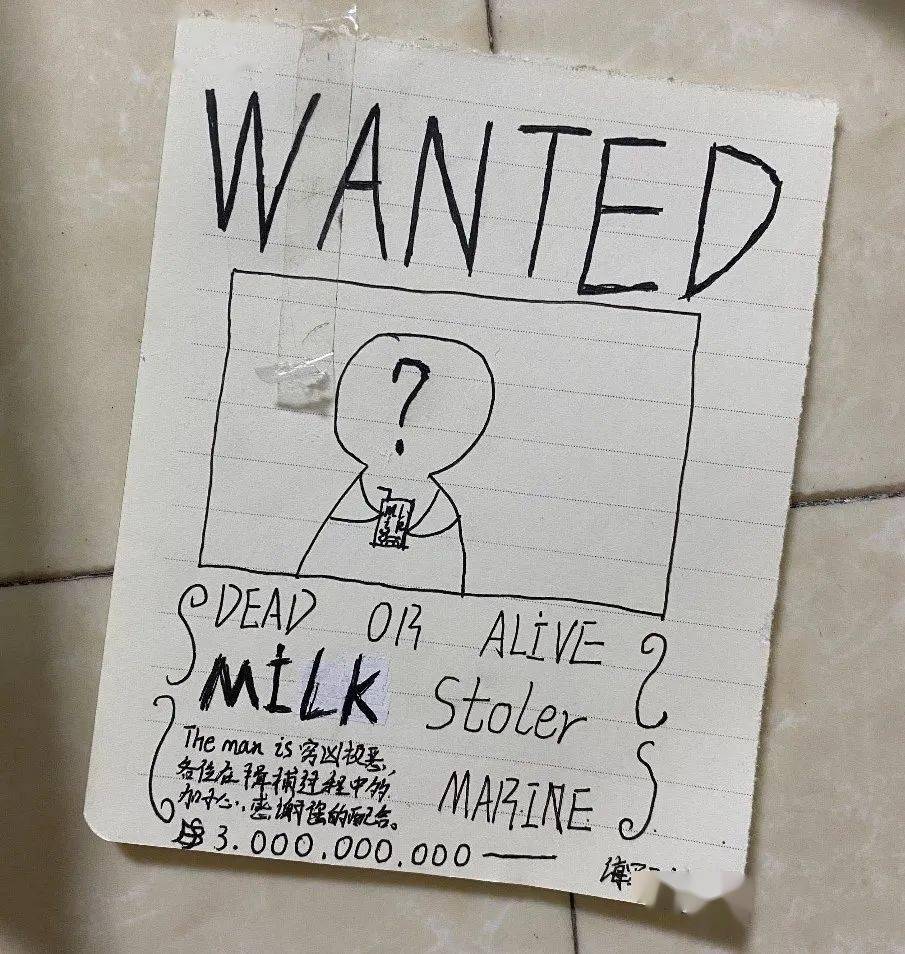 WANTED
?
MILK
DEAD OR ALIVE
MILK Stoler
The man is 穷凶极恶,
各位在缉捕过程中多
加小心,感谢您的配合。
MARINE
฿ 3.000.000.000 —